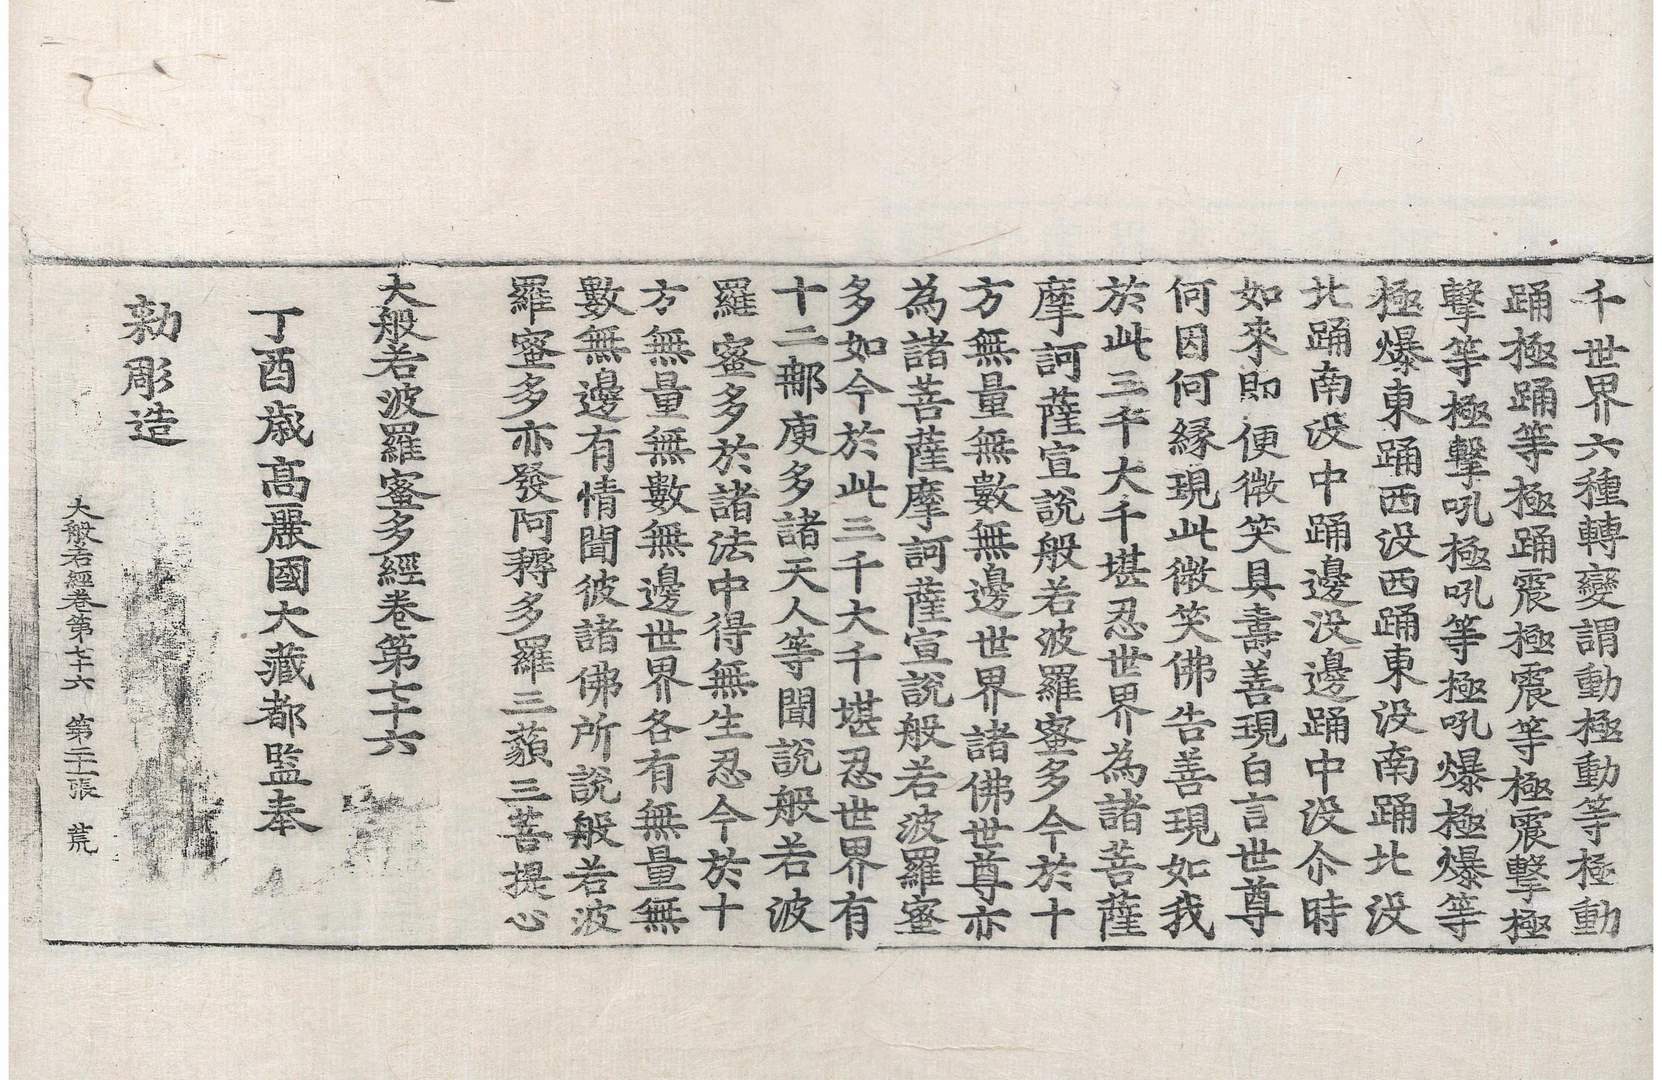 千世界六種轉變謂動極動等極動
踊極踊等極踊震極震等極震擊極
擊等極擊吼極吼等極吼爆極爆等
極爆東踊西没西踊東没南踊北没
北踊南没中踊邊没邊踊中没尒時
如來即便微笑具壽善現白言世尊
何因何緣現此微笑佛告善現如我
於此三千大千堪忍世界為諸菩薩
摩訶薩宣說般若波羅蜜多今於十
方無量無數無邊世界諸佛世尊亦
為諸菩薩摩訶薩宣說般若波羅蜜
多如今於此三千大千堪忍世界有
十二那庾多諸天人等聞說般若波
羅蜜多於諸法中得無生忍今於十
方無量無數無邊世界各有無量無
數無邊有情聞彼諸佛所說般若波
羅蜜多亦發阿耨多羅三藐三菩提心
大般若波羅蜜多經卷第七十六
丁酉歲高麗國大藏都監奉
勑彫造
大般若經卷第七十六 第二十一張 荒